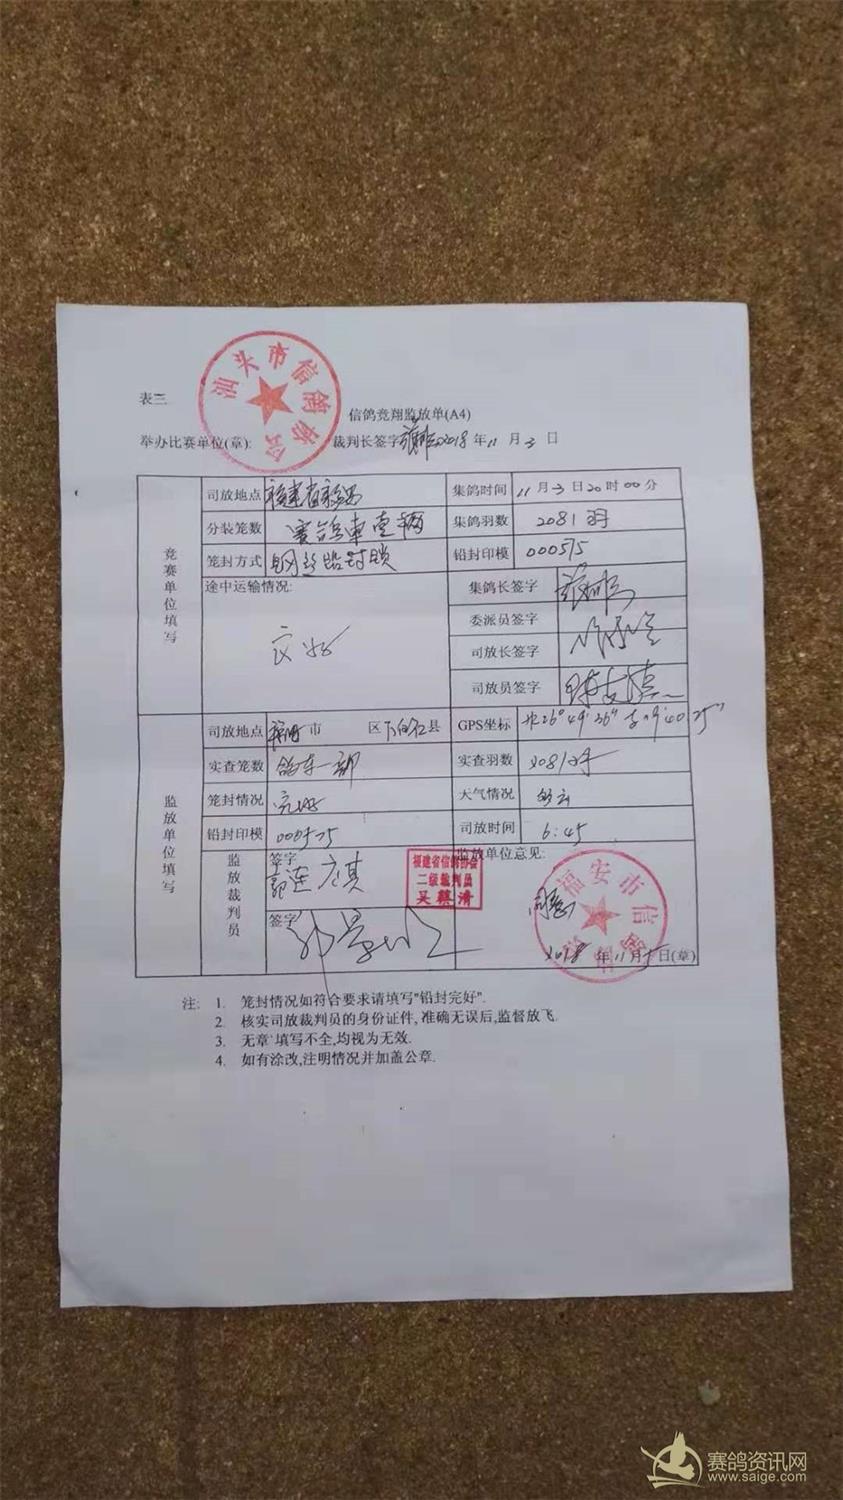 汕头市信鸽协会
表三
信鸽竞翔监放单(A4)
举办比赛单位(章): 裁判长签字 2018年11月3日
竞赛单位填写
司放地点 福建省福安 集鸽时间 11月3日20时00分
分装笼数 赛鸽车壹辆 集鸽羽数 2081羽
笼封方式 钢丝铅封锁 铅封印模 000575
途中运输情况: 良好 集鸽长签字
委派员签字
司放长签字
司放员签字
监放单位填写
司放地点 市 区 县 GPS坐标 北26°49′36″ 40.75″
实查笼数 鸽车一部 实查羽数 2081羽
笼封情况 完好 天气情况 多云
铅封印模 000575 司放时间 6:45
监放裁判员 签字 监放单位意见:
福建省信鸽协会
二级裁判员
签字 同意
福安市信鸽协会
2018年11月5日(章)
注: 1. 笼封情况如符合要求请填写"铅封完好".
2. 核实司放裁判员的身份证件,准确无误后,监督放飞.
3. 无章`填写不全,均视为无效.
4. 如有涂改,注明情况并加盖公章.
赛鸽资讯网
www.saige.com